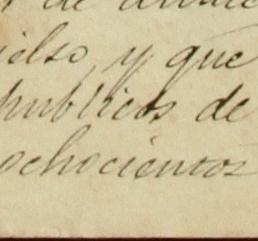 de
ielso, y que
publicos de
ochocientos